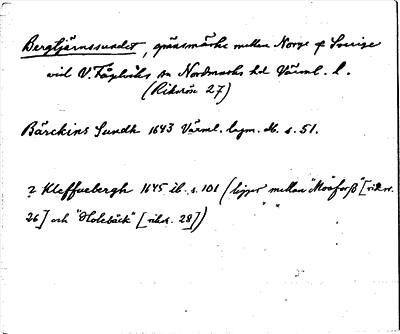 Bergtjärnssundet, gränsmärke mellan Norge o Sverige
vid V. Fågelviks sn Nordmarks hd Värml. l.
(Riksröse 27)
Bärckins Sundh 1643 Värml. lagm. db. s. 51.
? Kleffuebergh 1645 ib. s. 101 (ligger "mellan "Moaforß" [riksr.
26] och "Holebäck" [riksr. 28])